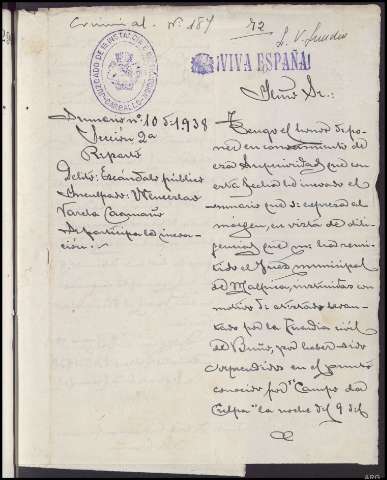 Criminal. Nº 187
72
¡VIVA ESPAÑA!
JUZGADO DE INSTRUCCION
CARBALLO
Sumario nº 105-1938
Sección 2ª
Reparto
Delito: Escándalo público
Inculpado: Wenceslao
Varela Caamaño
Se participa la incoa-
ción.-
Iltmo. Sr.:
Tengo el honor de po-
ner en conocimiento de
esa Superioridad que con
esta fecha he incoado el
sumario que se expresa al
márgen, en vista de dili-
gencias que me ha remi-
tido el Juez municipal
de Malpica, instruidas con
motivo de atestado levan-
tado por la Guardia civil
de Buño, por haber sido
sorprendidos en el punto
conocido por "Campo da
Crelpa" la noche del 9 del